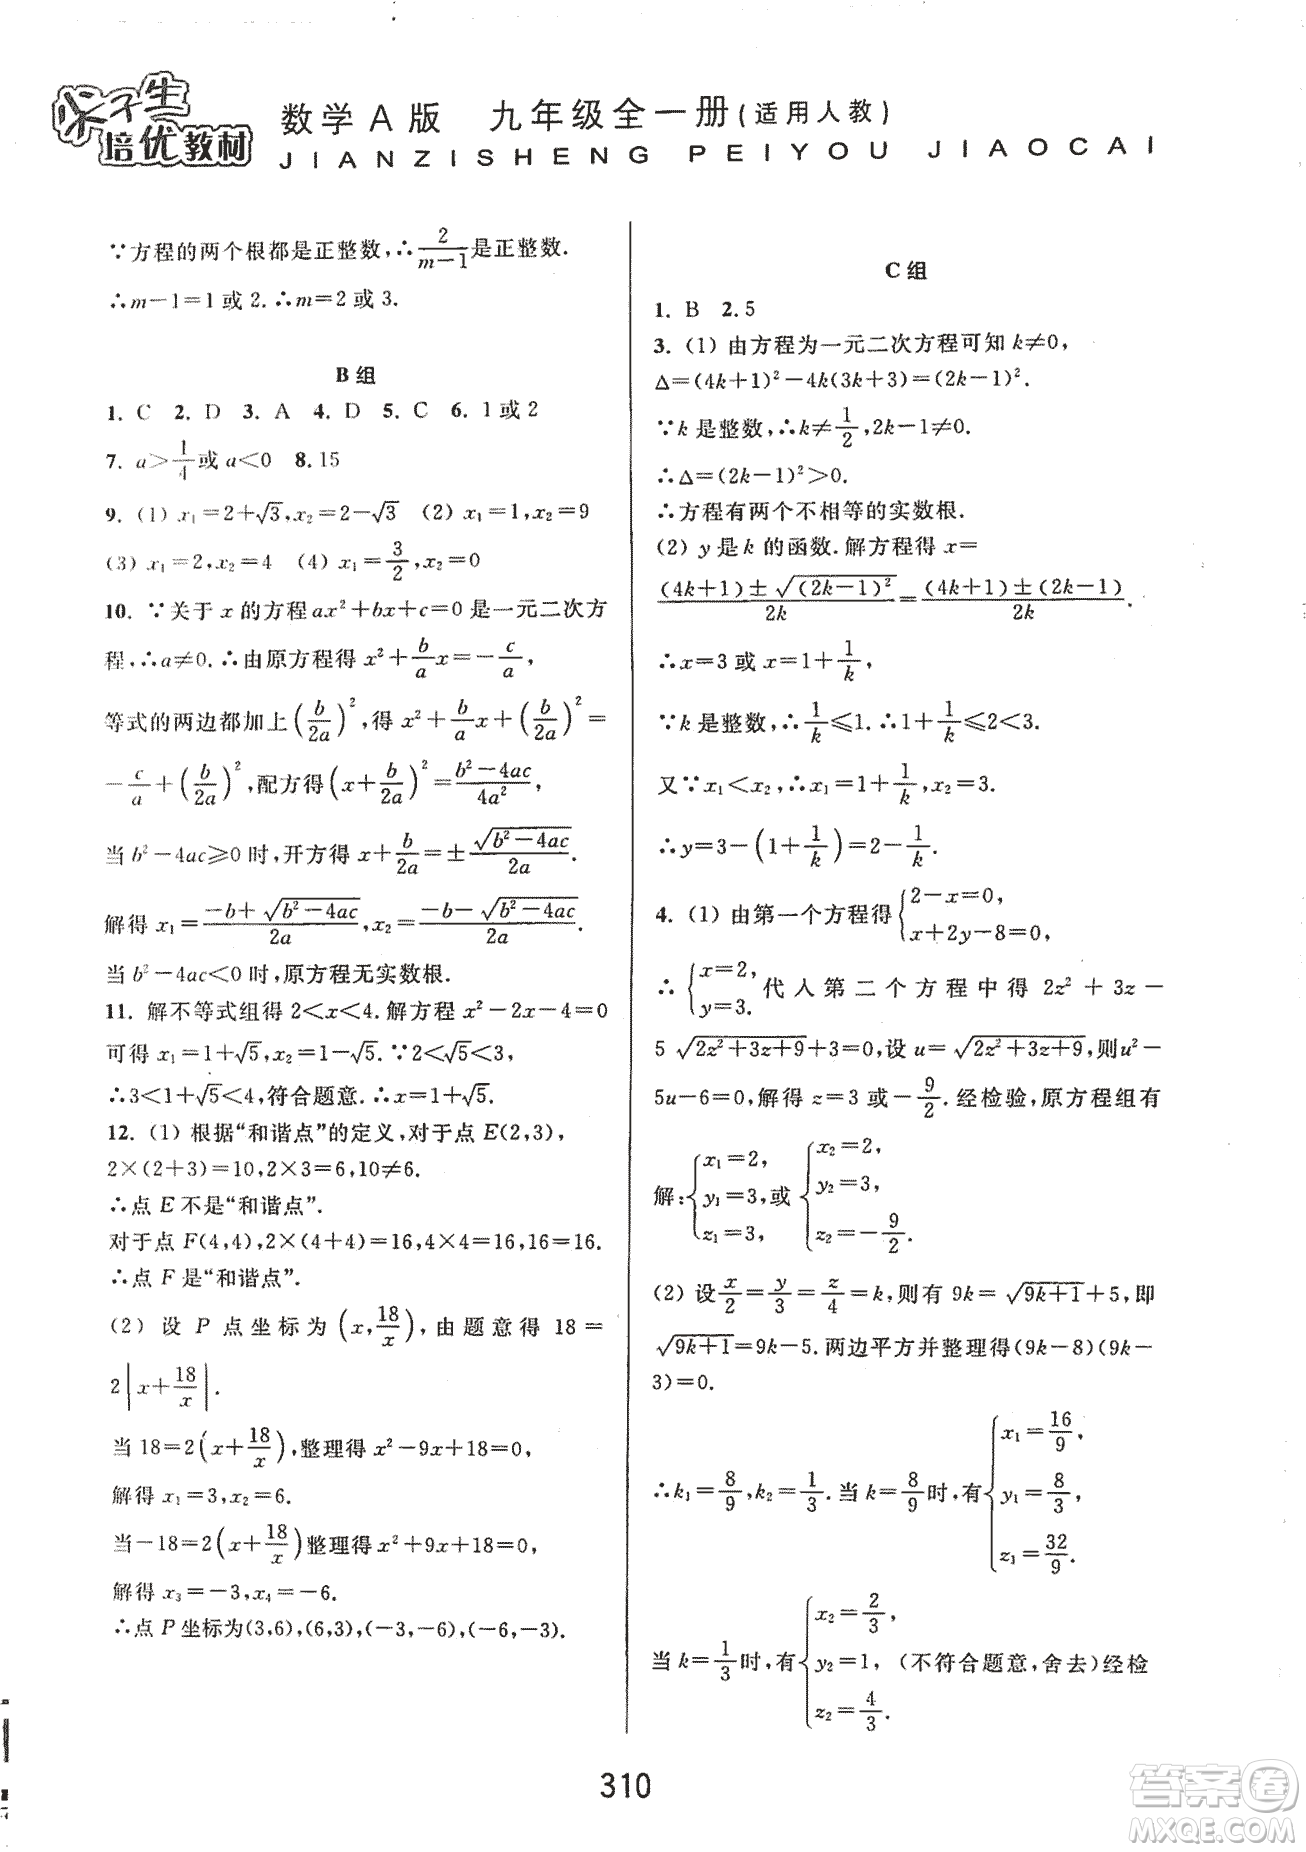 尖子生
培优教材
数学A版 九年级全一册(适用人教)
JIANZISHENG PEIYOU JIAOCAI
∵方程的两个根都是正整数,∴2/(m-1)是正整数.
∴m-1=1或2.∴m=2或3.
B组
1. C 2. D 3. A 4. D 5. C 6. 1或2
7. a>1/4或a<0 8. 15
9. (1) x₁=2+√3,x₂=2-√3 (2) x₁=1,x₂=9
(3) x₁=2,x₂=4 (4) x₁=3/2,x₂=0
10. ∵关于x的方程ax²+bx+c=0是一元二次方
程,∴a≠0.∴由原方程得x²+(b/a)x=-c/a,
等式的两边都加上(b/2a)²,得x²+(b/a)x+(b/2a)²=
-c/a+(b/2a)²,配方得(x+b/2a)²=(b²-4ac)/4a²,
当b²-4ac≥0时,开方得x+b/2a=±√(b²-4ac)/2a.
解得x₁=(-b+√(b²-4ac))/2a,x₂=(-b-√(b²-4ac))/2a.
当b²-4ac<0时,原方程无实数根.
11. 解不等式组得2<x<4.解方程x²-2x-4=0
可得x₁=1+√5,x₂=1-√5.∵2<√5<3,
∴3<1+√5<4,符合题意.∴x=1+√5.
12. (1) 根据“和谐点”的定义,对于点E(2,3),
2×(2+3)=10,2×3=6,10≠6.
∴点E不是“和谐点”.
对于点F(4,4),2×(4+4)=16,4×4=16=16.
∴点F是“和谐点”.
(2) 设P点坐标为(x,18/x),由题意得18=
2|x+18/x|.
当18=2(x+18/x),整理得x²-9x+18=0,
解得x₁=3,x₂=6.
当-18=2(x+18/x)整理得x²+9x+18=0,
解得x₃=-3,x₄=-6.
∴点P坐标为(3,6),(6,3),(-3,-6),(-6,-3).
C组
1. B 2. 5
3. (1) 由方程为一元二次方程可知k≠0,
Δ=(4k+1)²-4k(3k+3)=(2k-1)².
∵k是整数,∴k≠1/2,2k-1≠0.
∴Δ=(2k-1)²>0.
∴方程有两个不相等的实数根.
(2) y是k的函数.解方程得x=
((4k+1)±√((2k-1)²))/2k=((4k+1)±(2k-1))/2k.
∴x=3或x=1+1/k,
∵k是整数,∴1/k≤1.∴1+1/k≤2<3.
又∵x₁<x₂,∴x₁=1+1/k,x₂=3.
∴y=3-(1+1/k)=2-1/k.
4. (1) 由第一个方程得{2-x=0, x+2y-8=0,
∴{x=2, y=3. 代入第二个方程中得2z²+3z-
5√(2z²+3z+9)+3=0,设u=√(2z²+3z+9),则u²-
5u-6=0,解得z=3或-9/2.经检验,原方程组有
解:{x₁=2, y₁=3, z₁=3, 或{x₂=2, y₂=3, z₂=-9/2.
(2) 设x/2=y/3=z/4=k,则有9k=√(9k+1)+5,即
√(9k+1)=9k-5.两边平方并整理得(9k-8)(9k-
3)=0.
∴k₁=8/9,k₂=1/3.当k=8/9时,有{x₁=16/9, y₁=8/3, z₁=32/9.
当k=1/3时,有{x₂=2/3, y₂=1, z₂=4/3. (不符合题意,舍去)经检
310
答案卷
MXQE.COM